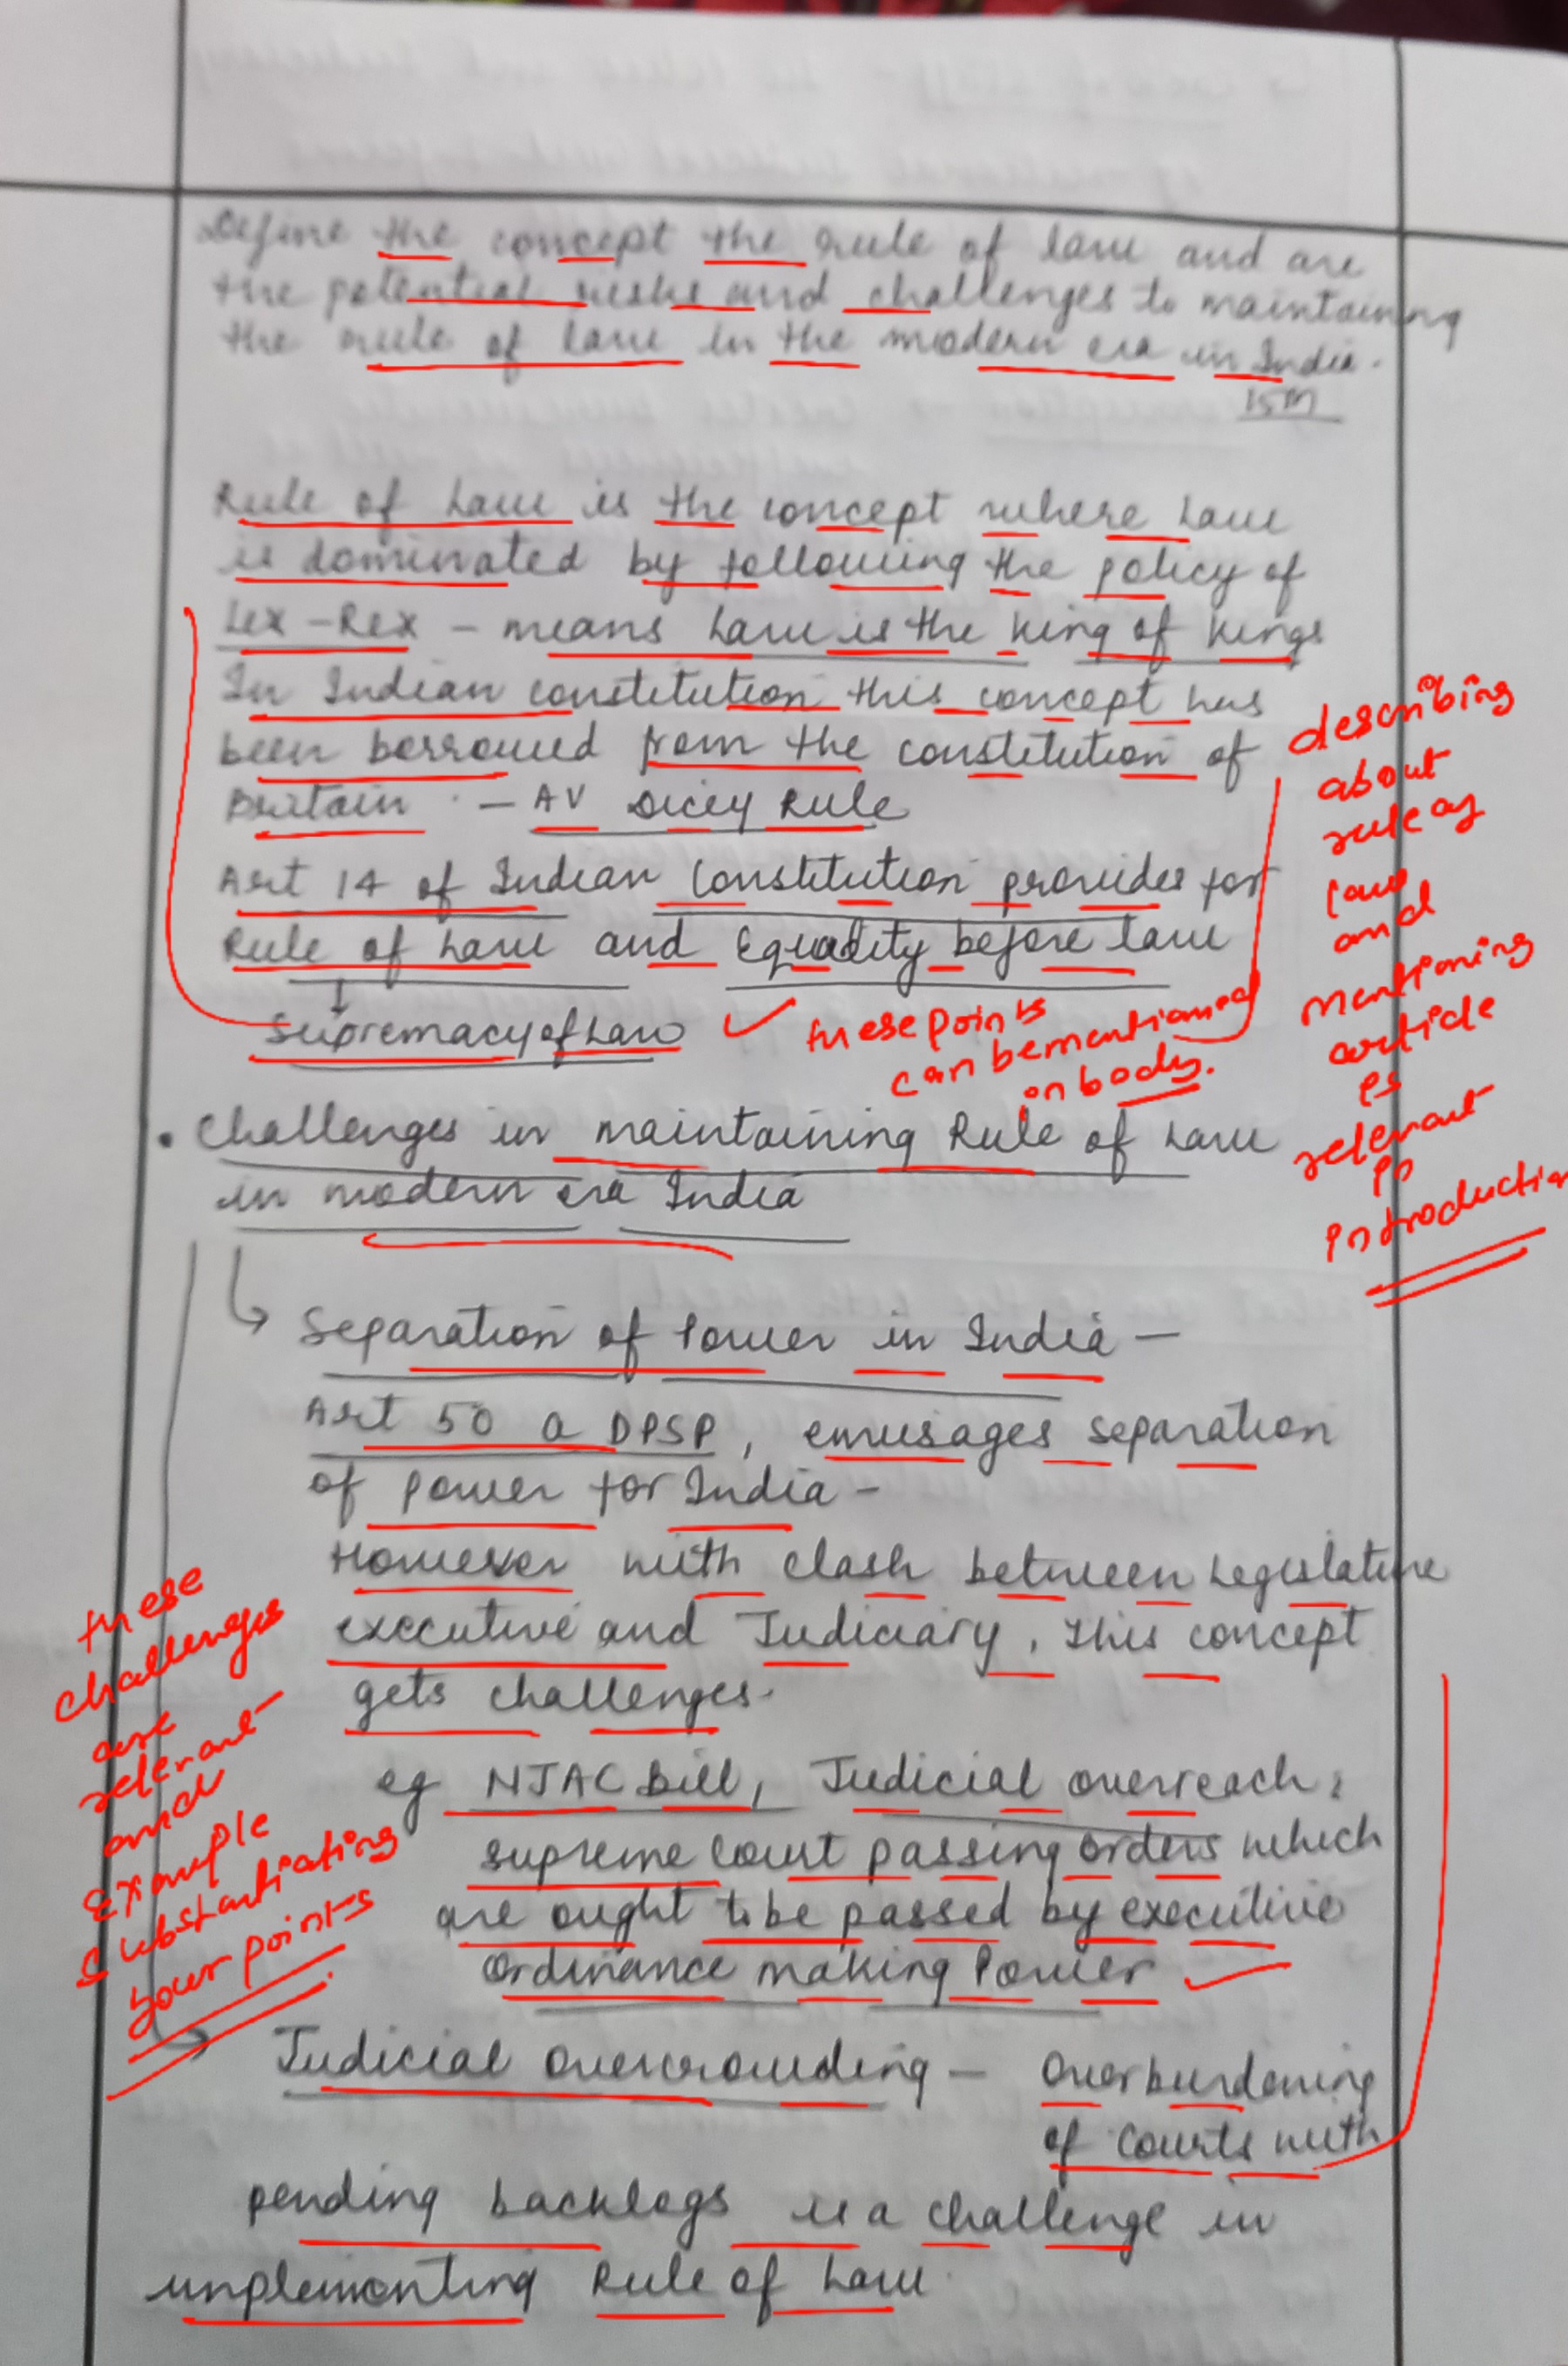 Define the concept the rule of law and are
the potential risks and challenges to maintaining
the rule of law in the modern era in India.
15M
Rule of Law is the concept where Law
is dominated by following the policy of
Lex-Rex - means Law is the King of Kings
In Indian constitution this concept has
been borrowed from the constitution of
Britain - AV Dicey Rule
Art 14 of Indian Constitution provides for
Rule of Law and Equality before law
Supremacy of Law
these points
can be mentioned
on body.
describing
about
rule of
law
and
mentioning
article
is
relevant
in
introduction
• Challenges in maintaining Rule of Law
in modern era India
Separation of Power in India -
Art 50 a DPSP, envisages separation
of power for India -
However with clash between Legislature
executive and Judiciary, this concept
gets challenges.
eg NJAC Bill, Judicial overreach,
supreme court passing orders which
are ought to be passed by executive
ordinance making Power
these
challenges
are
relevant
and
Example
substantiating
your points
Judicial overcrowding - Overburdening
of Courts with
pending backlogs is a challenge in
implementing Rule of Law.